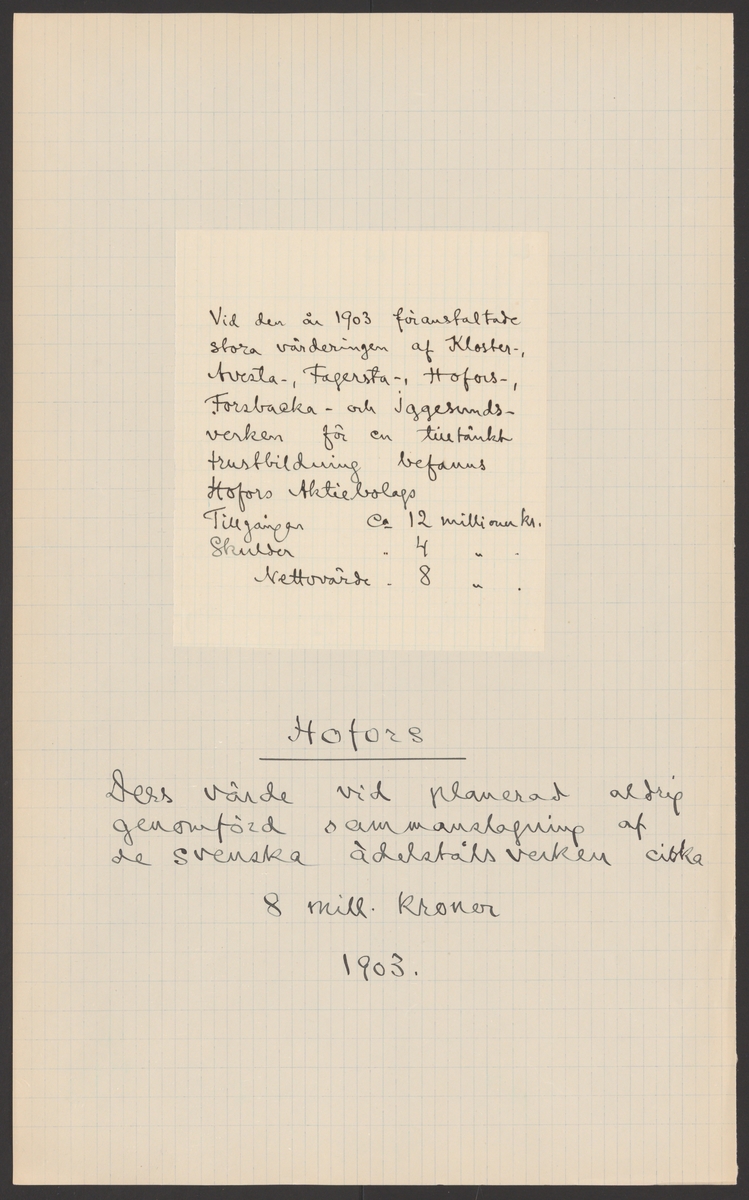 Vid den år 1903 föranstaltade
stora värderingen af Kloster-,
Avesta-, Fagersta-, Hofors-,
Forsbacka- och Iggesunds-
verken för en tilltänkt
trustbildning befanns
Hofors Aktiebolags
Tillgångar Ca 12 millioner kr.
Skulder " 4 " "
Nettovärde " 8 " "
Hofors
Dess värde vid planerad aldrig
genomförd sammanslagning af
de svenska ädelstålsverken cirka
8 mill. kronor
1903.